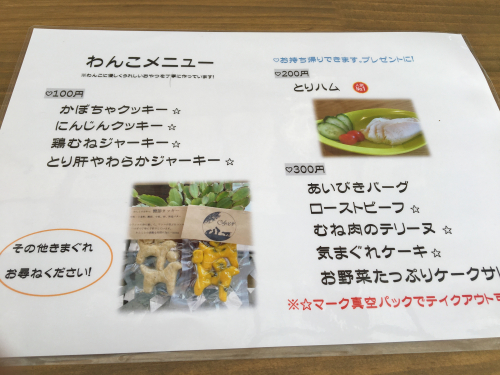 わんこメニュー
※わんこに優しくうれしいおやつを丁寧に作っています!
♡100円
かぼちゃクッキー ☆
にんじんクッキー ☆
鶏むねジャーキー ☆
とり肝やわらかジャーキー ☆
その他きまぐれ
お尋ねください!
♡お持ち帰りできます。プレゼントに!
♡200円
とりハム
♡300円
あいびきバーグ
ローストビーフ ☆
むね肉のテリーヌ ☆
気まぐれケーキ ☆
お野菜たっぷりケークサ
※☆マーク真空パックでテイクアウト可